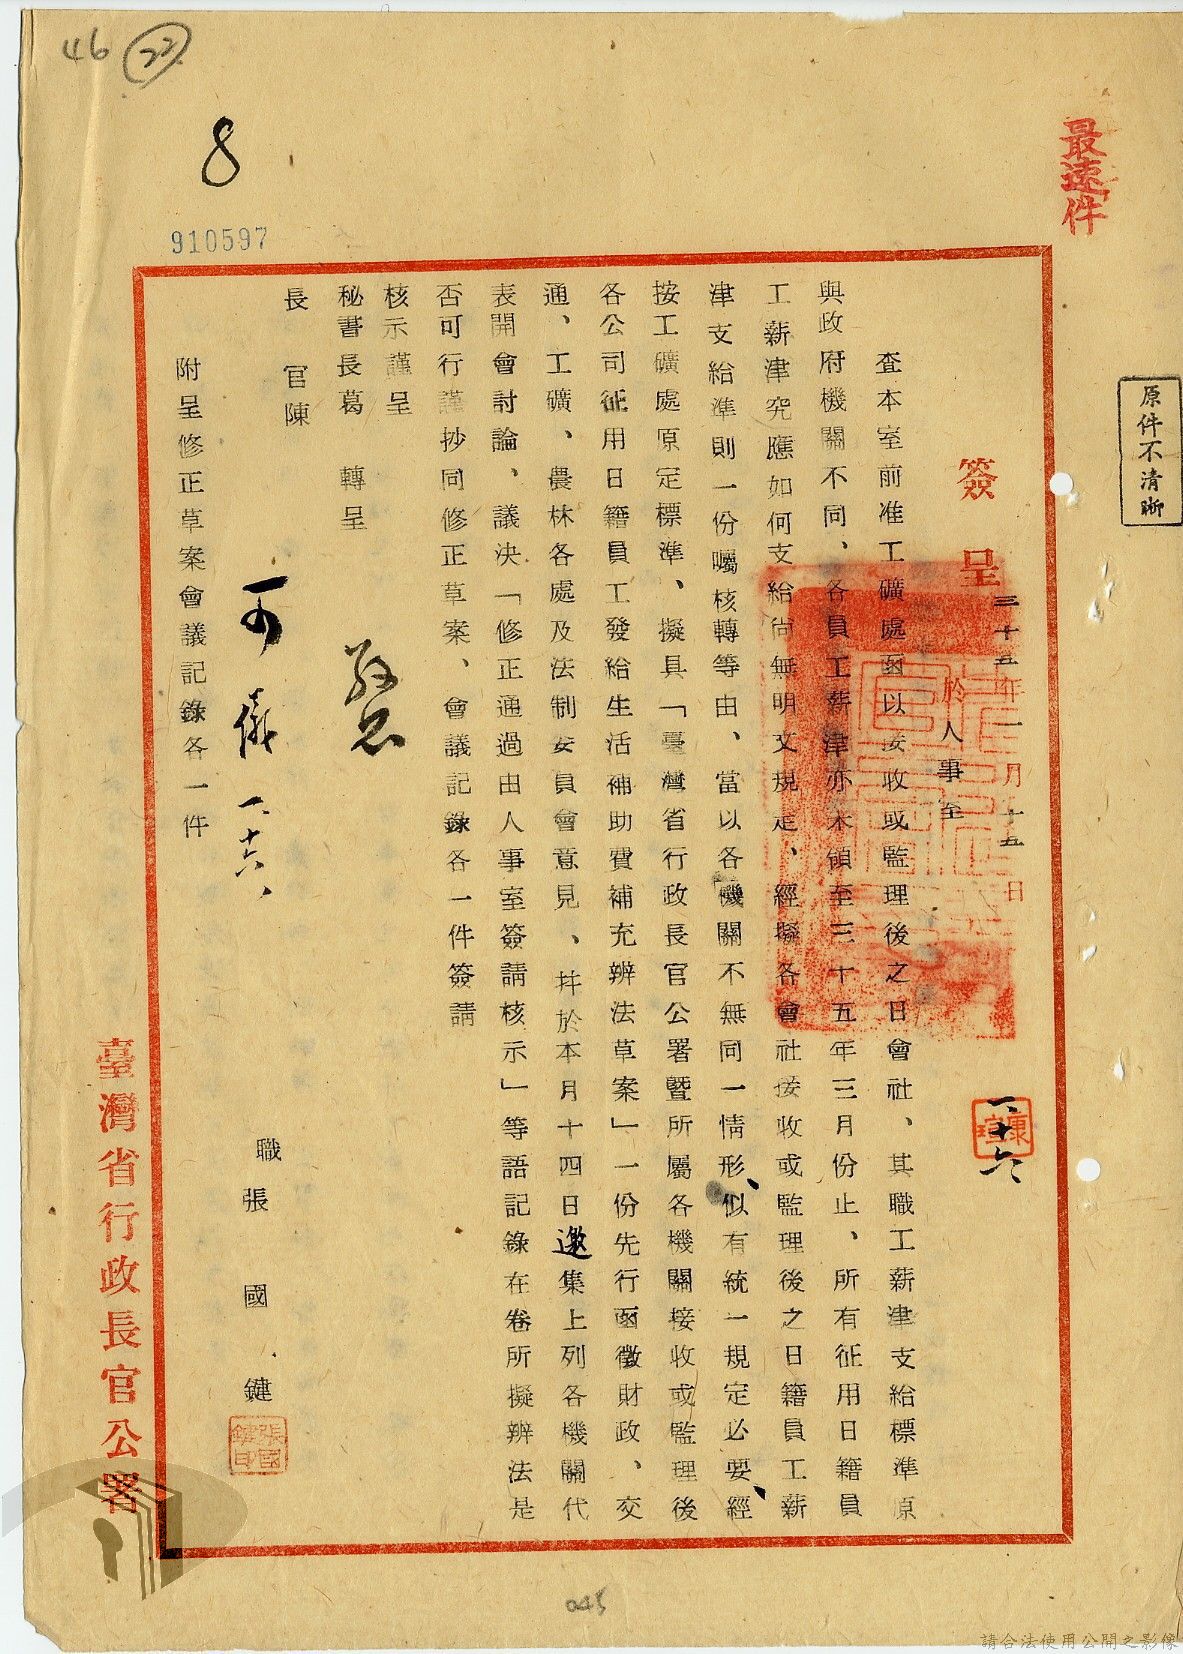 46 22
8
910597
最速件
原件不清晰
簽呈 三十五年一月十五日
於人事室
查本室前准工礦處函以接收或監理後之日會社、其職工薪津支給標準原
與政府機關不同、各員工薪津亦未領至三十五年三月份止、所有征用日籍員
工薪津究應如何支給尚無明文規定、經擬各會社接收或監理後之日籍員工薪
津支給準則一份囑核轉等由、當以各機關不無同一情形、似有統一規定必要、經
按工礦處原定標準、擬具「臺灣省行政長官公署暨所屬各機關接收或監理後
各公司征用日籍員工發給生活補助費補充辨法草案」一份先行函徵財政、交
通、工礦、農林各處及法制委員會意見、幷於本月十四日邀集上列各機關代
表開會討論、議決「修正通過由人事室簽請核示」等語記錄在卷所擬辨法是
否可行謹抄同修正草案、會議記錄各一件簽請
核示謹呈
秘書長葛 轉呈
長官陳
職張國鍵
張國鍵印
附呈修正草案會議記錄各一件
可 儀 一、十六、
康瑄
一十六
臺灣省行政長官公署
045
請合法使用公開之影像